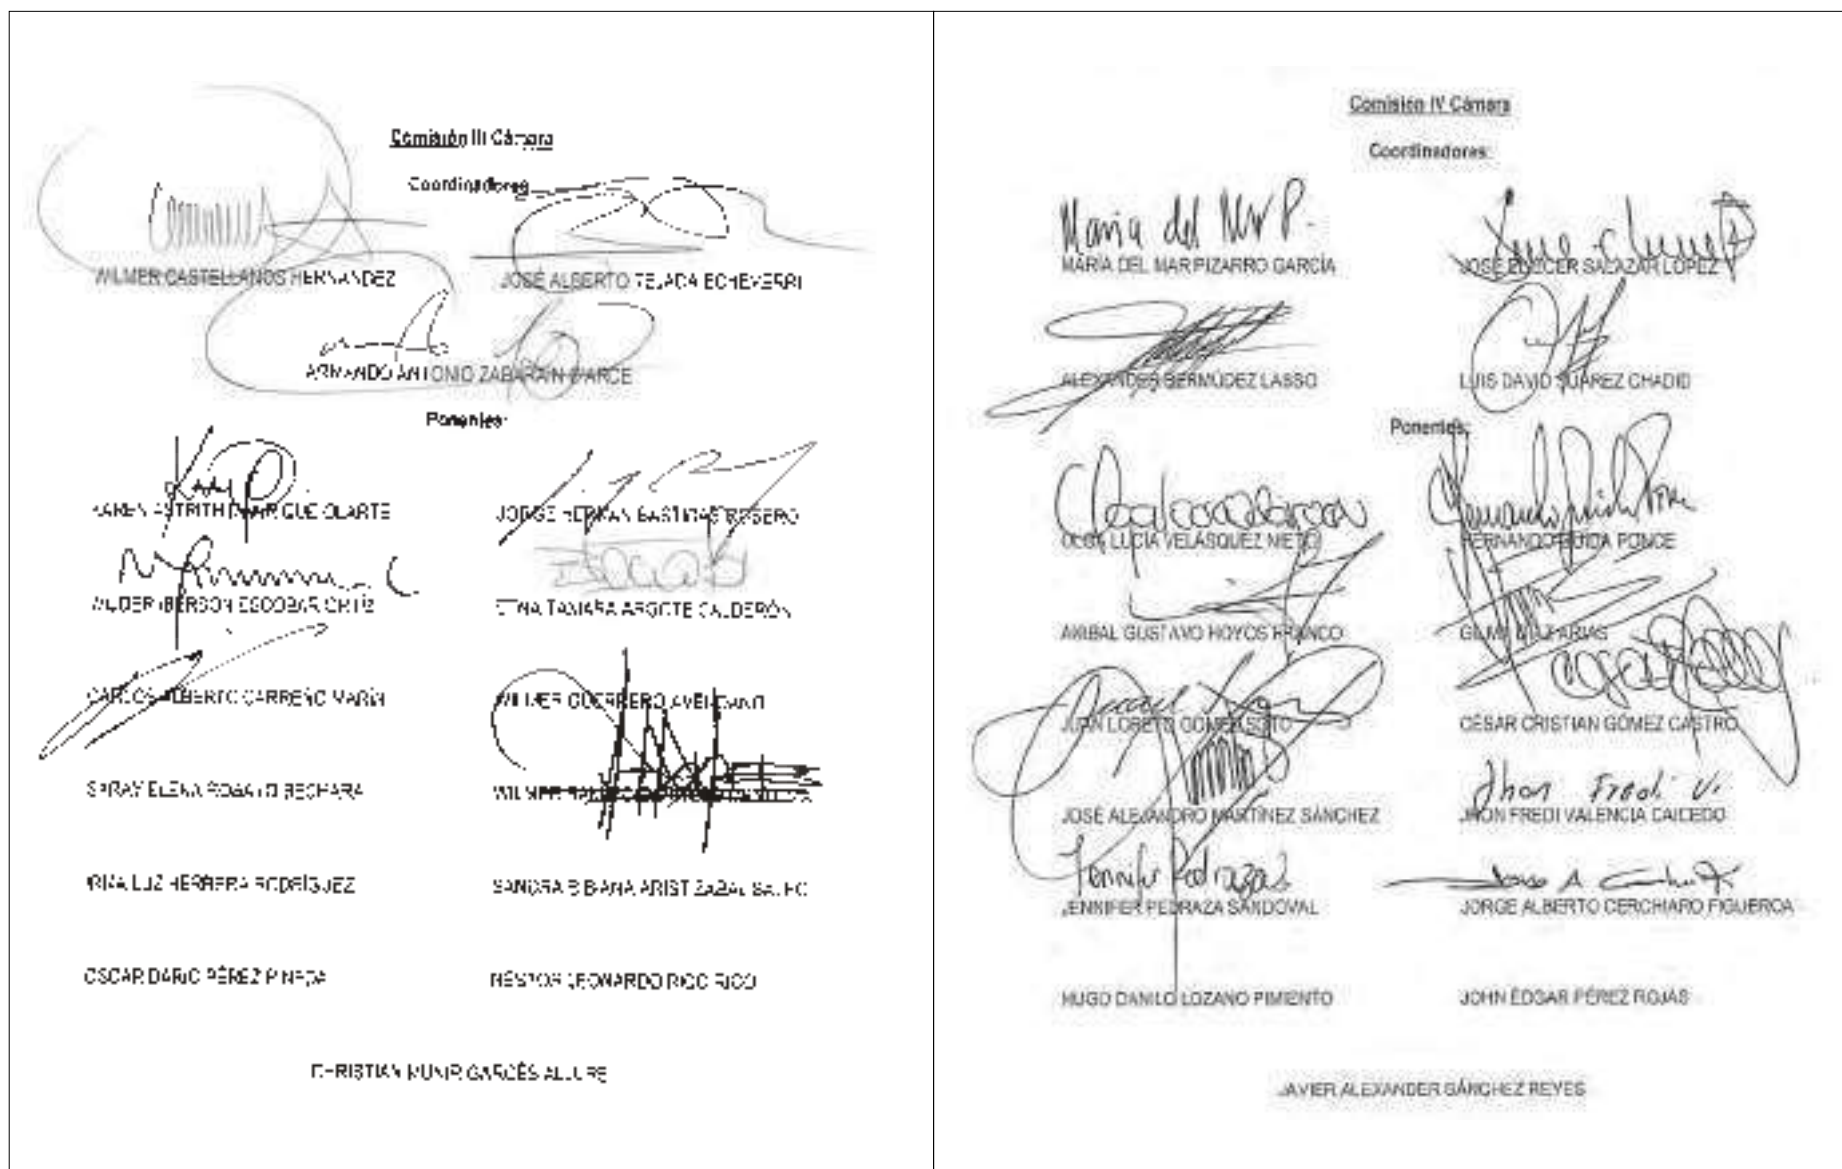 Comisión III Cámara
Coordinadores
WILMER CASTELLANOS HERNÁNDEZ
JOSÉ ALBERTO TEJADA ECHEVERRI
ARMANDO ANTONIO ZABARAÍN D'ARCE
Ponentes:
KAREN ASTRITH MANRIQUE OLARTE
JORGE HERNÁN BASTIDAS ROSERO
WILDER IBERSON ESCOBAR ORTÍZ
ETNA TAMARA ARGOTE CALDERÓN
CARLOS ALBERTO CARREÑO MARÍN
WILMER GUERRERO AVENDAÑO
SARAY ELENA ROBAYO BECHARA
WILMER
IRMA LUZ HERRERA RODRÍGUEZ
SANDRA BIBIANA ARISTIZABAL SALEG
OSCAR DARIO PÉREZ PINEDA
NÉSTOR LEONARDO RICO RICO
CHRISTIAN MUNIR GARCÉS ALJURE
Comisión IV Cámara
Coordinadores:
María del Mar P.
MARÍA DEL MAR PIZARRO GARCÍA
JOSÉ ELIECER SALAZAR LÓPEZ
ALEXANDER BERMÚDEZ LASSO
LUIS DAVID SUÁREZ CHADID
Ponentes:
OLGA LUCÍA VELÁSQUEZ NIETO
HERNANDO GUIDA PONCE
ANIBAL GUSTAVO HOYOS FRANCO
GILMA DÍAZ ARIAS
JUAN LORETO GÓMEZ SOTO
CÉSAR CRISTIAN GÓMEZ CASTRO
Jhon Fredi V.
JOSÉ ALEJANDRO MARTÍNEZ SÁNCHEZ
JHON FREDI VALENCIA CAICEDO
Jennifer Pedraza S
JENNIFER PEDRAZA SANDOVAL
JORGE ALBERTO CERCHIARO FIGUEROA
HUGO DANILO LOZANO PIMIENTO
JOHN EDGAR PÉREZ ROJAS
JAVIER ALEXANDER SÁNCHEZ REYES